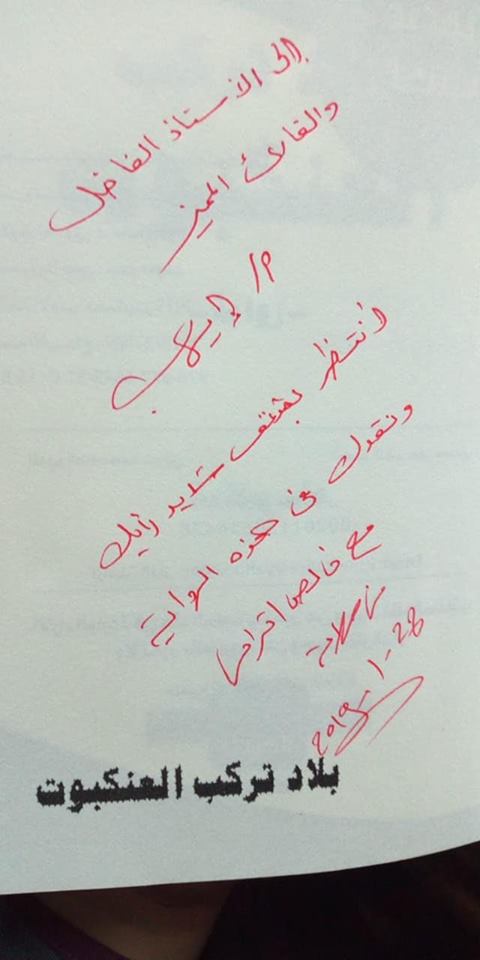 إلى الأستاذ الفاضل
والقارئ المميز
م/ إيهاب
أنتظر بشغف شديد رأيك
ونقدك فى هذه الرواية
مع خالص احترامى
28-1-2019
بلاد تركب العنكبوت